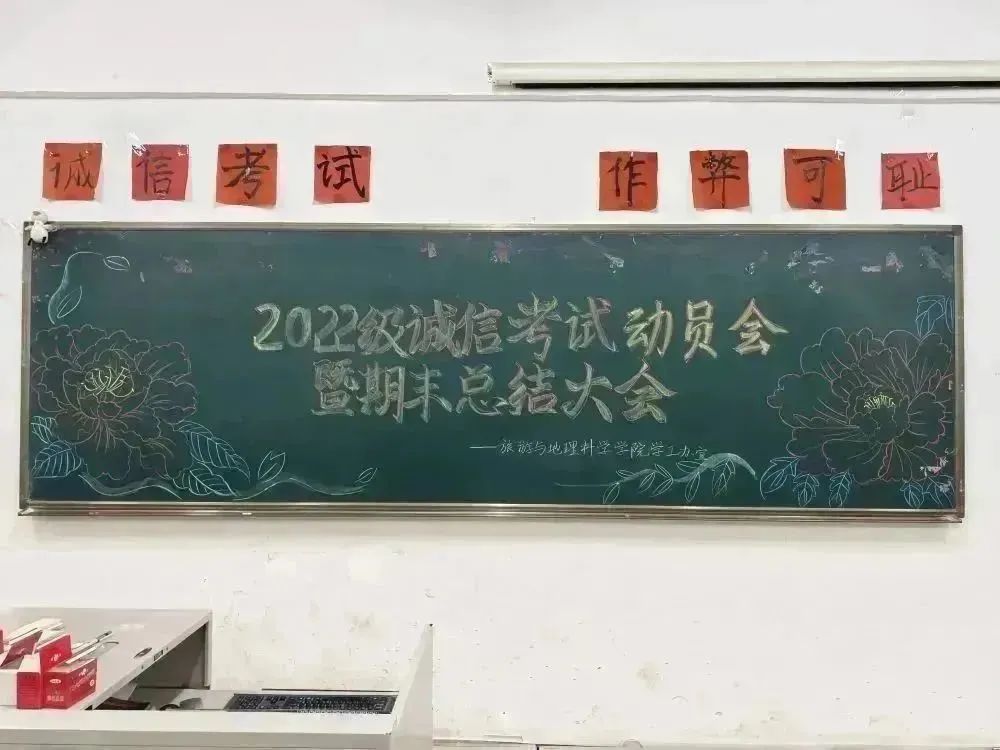 诚信考试 作弊可耻
2022级诚信考试动员会
暨期末总结大会
——旅游与地理科学学院学工办宣